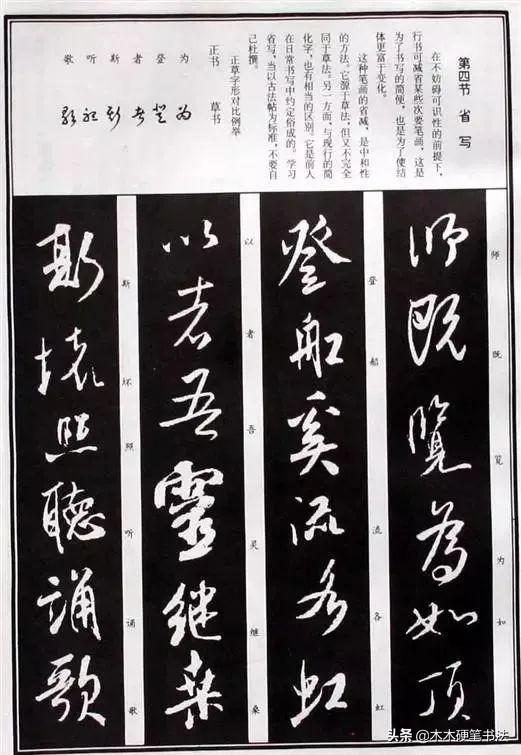 第四节 省写
在不妨碍可识性的前提下，
行书可减省某些次要笔画，这是
为了书写的简便，也是为了使结
体更富于变化。
这种笔画的省减，是中和性
的方法。它源于草法，但又不完全
同于草法。另一方面，与现行的简
化字，也有相当的区别。它是前人
在日常书写中约定俗成的。学习
省写，当以古法帖为标准，不要自
己杜撰。
正草字形对比例举
正书 草书
为 为
登 登
者 者
斯 斯
听 听
歌 歌
师既览为如
师既覽為如顶
登船流各虹
登船奚流各虹
以者吾灵继桑
以者吾靈继桑
斯坏照听诵歌
斯壊照聽诵歌
头条 @木木硬笔书法